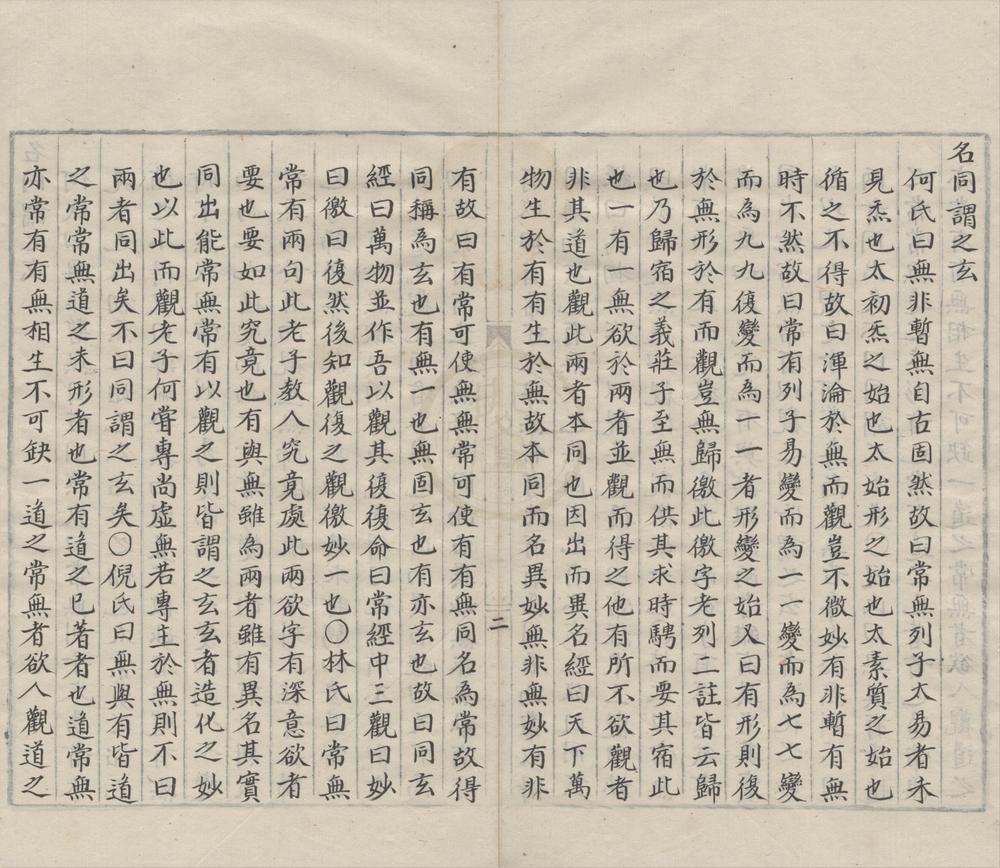 名同謂之玄
何氏曰無非暫無自古固然故曰常無列子太易者未
見炁也太初炁之始也太始形之始也太素質之始也
循之不得故曰渾淪於無而觀豈不微妙有非暫有無
時不然故曰常有列子易變而為一一變而為七七變
而為九九復變而為一一者形變之始又曰有形則復
於無形於有而觀豈無歸徼此徼字老列二註皆云歸
也乃歸宿之義莊子至無而供其求時騁而要其宿此
也一有一無欲於兩者並觀而得之他有所不欲觀者
非其道也觀此兩者本同也因出而異名經曰天下萬
物生於有有生於無故本同而名異妙無非無妙有非
二
有故曰有常可使無無常可使有有無同名為常故得
同稱為玄也有無一也無固玄也有亦玄也故曰同玄
經曰萬物並作吾以觀其復復命曰常經中三觀曰妙
曰徼曰復然後知觀復之觀徼妙一也〇林氏曰常無
常有兩句此老子教人究竟處此兩欲字有深意欲者
要也要如此究竟也有與無雖為兩者雖有異名其實
同出能常無常有以觀之則皆謂之玄玄者造化之妙
也以此而觀老子何嘗專尚虛無若專主於無則不曰
兩者同出矣不曰同謂之玄矣〇倪氏曰無與有皆道
之常常無道之未形者也常有道之已著者也道常無
亦常有有無相生不可缺一道之常無者欲人觀道之